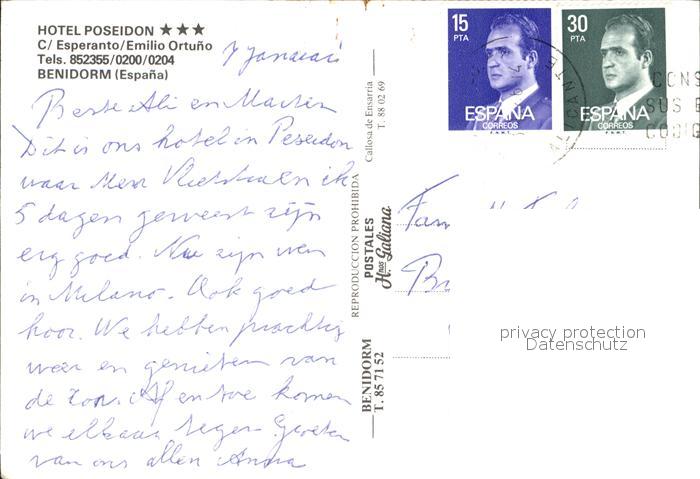 HOTEL POSEIDON ★★★
C/ Esperanto/Emilio Ortuño
Tels. 852355/0200/0204
BENIDORM (España)
7 Januari
Beste Ali en Martin
Dit is ons hotel in Poseidon
waar Mevr en ik
5 dagen geweest zijn
erg goed. Nu zijn we
in Milano. Ook goed
hoor. We hebben prachtig
weer en genieten van
de zon. Af en toe komen
we elkaar tegen. Groeten
van ons allen Anna
REPRODUCCION PROHIBIDA
Callosa de Ensarria
T. 88 02 69
POSTALES
Hnos Galiana
BENIDORM
T. 85 71 52
15
PTA
ESPAÑA
CORREOS
F.N.M.T.
30
PTA
ESPAÑA
CORREOS
F.N.M.T.
ALICANTE
CONS
SUS
CODIG
Fam
privacy protection
Datenschutz